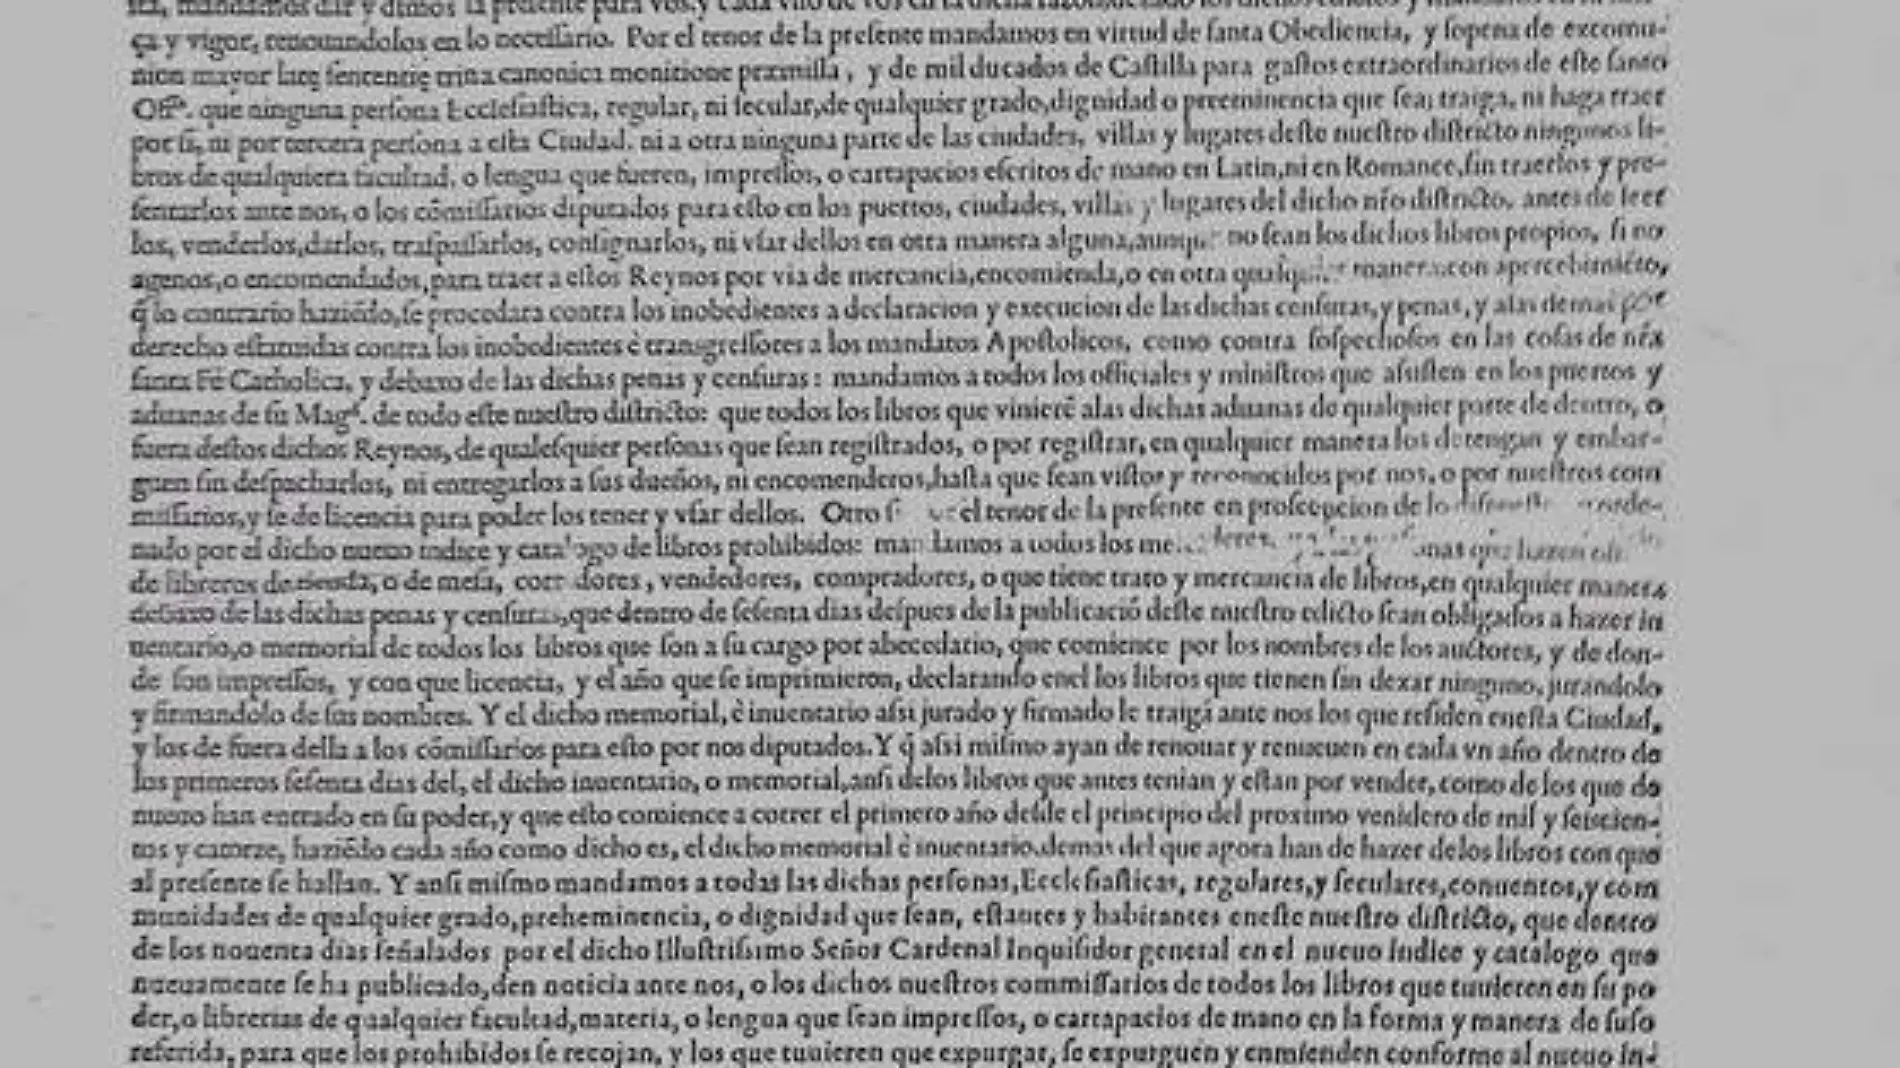 mandamos dar y dimos la presente para vos, y cada vno de vos en la dicha
ça y vigor, renouandolos en lo necessario. Por el tenor de la presente mandamos en virtud de santa Obediencia, y sopena de excomu-
nion mayor latę sententię trina canonica monitione præmissa, y de mil ducados de Castilla para gastos extraordinarios de este santo
Offº. que ninguna persona Ecclesiastica, regular, ni secular, de qualquier grado, dignidad o preeminencia que sea; traiga, ni haga traer
por si, ni por tercera persona a esta Ciudad. ni a otra ninguna parte de las ciudades, villas y lugares deste nuestro districto ningunos li-
bros de qualquiera facultad, o lengua que fueren, impressos, o cartapacios escritos de mano en Latin, ni en Romance, sin traerlos y pre-
sentarlos ante nos, o los cōmissarios diputados para esto en los puertos, ciudades, villas y lugares del dicho nr̄o districto, antes de leer
los, venderlos, darlos, traspassarlos, consignarlos, ni vsar dellos en otra manera alguna, aunque no sean los dichos libros propios, si no
agenos, o encomendados, para traer a estos Reynos por via de mercancia, encomienda, o en otra qualquier manera: con apercebimiēto,
q̄ lo contrario haziēdo, se procedara contra los inobedientes a declaracion y execucion de las dichas censuras, y penas, y alas demas por
derecho estatuidas contra los inobedientes è transgressores a los mandatos Apostolicos, como contra sospechosos en las cosas de nr̄a
santa Fè Catholica, y debaxo de las dichas penas y censuras: mandamos a todos los officiales y ministros que assisten en los puertos y
aduanas de su Magᵈ. de todo este nuestro districto: que todos los libros que vinierē alas dichas aduanas de qualquier parte de dentro, o
fuera destos dichos Reynos, de qualesquier personas que sean registrados, o por registrar, en qualquier manera los detengan y embar-
guen sin despacharlos, ni entregarlos a sus dueños, ni encomenderos, hasta que sean vistor y reconocidos por nos, o por nuestros com
missarios, y se de licencia para poder los tener y vsar dellos. Otro si el tenor de la presente en prosecucion de lo
nado por el dicho nueuo indice y catalogo de libros prohibidos: mandamos a todos los que hazen
de libreros de tienda, o de mesa, corredores, vendedores, compradores, o que tiene trato y mercancia de libros, en qualquier manera
debaxo de las dichas penas y censuras, que dentro de sesenta dias despues de la publicació deste nuestro edicto sean obligados a hazer in
uentario, o memorial de todos los libros que son a su cargo por abecedario, que comience por los nombres de los auctores, y de don-
de son impressos, y con que licencia, y el año que se imprimieron, declarando enel los libros que tienen sin dexar ninguno, jurandolo
y firmandolo de sus nombres. Y el dicho memorial, è inuentario assi jurado y firmado le traigā ante nos los que residen enesta Ciudad,
y los de fuera della a los cōmissarios para esto por nos diputados. Y q̄ assi mismo ayan de renouar y renueuen en cada vn año dentro de
los primeros sesenta dias del, el dicho inuentario, o memorial, ansi delos libros que antes tenian y estan por vender, como de los que de
nueuo han entrado en su poder, y que esto comience a correr el primero año desde el principio del proximo venidero de mil y seiscien-
tos y catorze, haziēdo cada año como dicho es, el dicho memorial è inuentario, demas del que agora han de hazer delos libros con que
al presente se hallan. Y ansi mismo mandamos a todas las dichas personas, Ecclesiasticas, regulares, y seculares, conuentos, y com
munidades de qualquier grado, preheminencia, o dignidad que sean, estantes y habitantes eneste nuestro districto, que dentro
de los nouenta dias señalados por el dicho Illustrissimo Señor Cardenal Inquisidor general en el nueuo indice y catalogo que
nueuamente se ha publicado, den noticia ante nos, o los dichos nuestros commissarios de todos los libros que tuuieren en su po
der, o librerias de qualquier facultad, materia, o lengua que sean impressos, o cartapacios de mano en la forma y manera de suso
referida, para que los prohibidos se recojan, y los que tuuieren que expurgar, se expurguen y enmienden conforme al nueuo in-